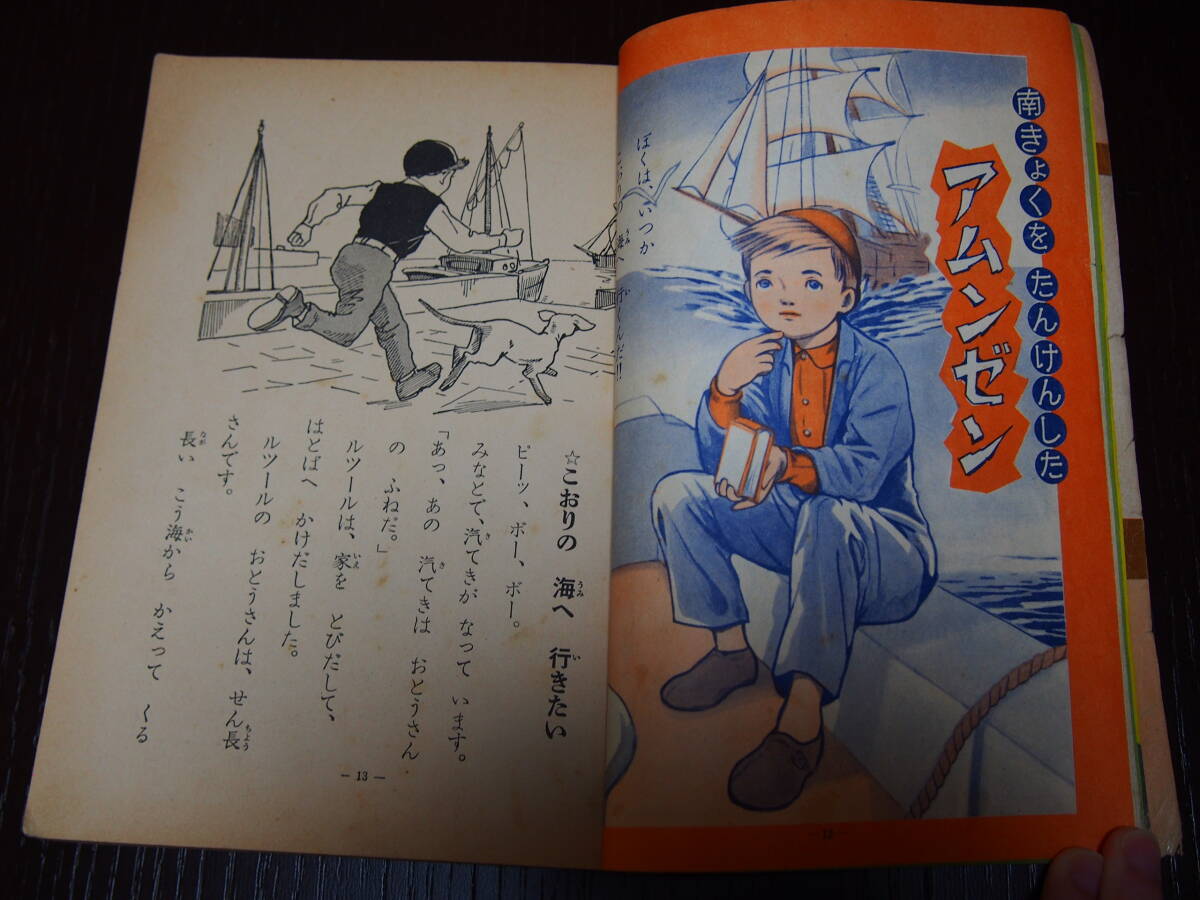 南きょくを たんけんした
アムンゼン
ぼくは、いつか
海へ 行くんだ!!
うみ
い
— 12 —
☆こおりの 海へ 行きたい
うみ
い
ピーッ、ボー、ボー。
みなとで、汽てきが なって います。
き
「あっ、あの 汽てきは おとうさん
き
の ふねだ。」
ルツールは、家を とびだして、
いえ
はとばへ かけだしました。
ルツールの おとうさんは、せん長
ちょう
さんです。
長い こう海から かえって くる
なが
かい
— 13 —